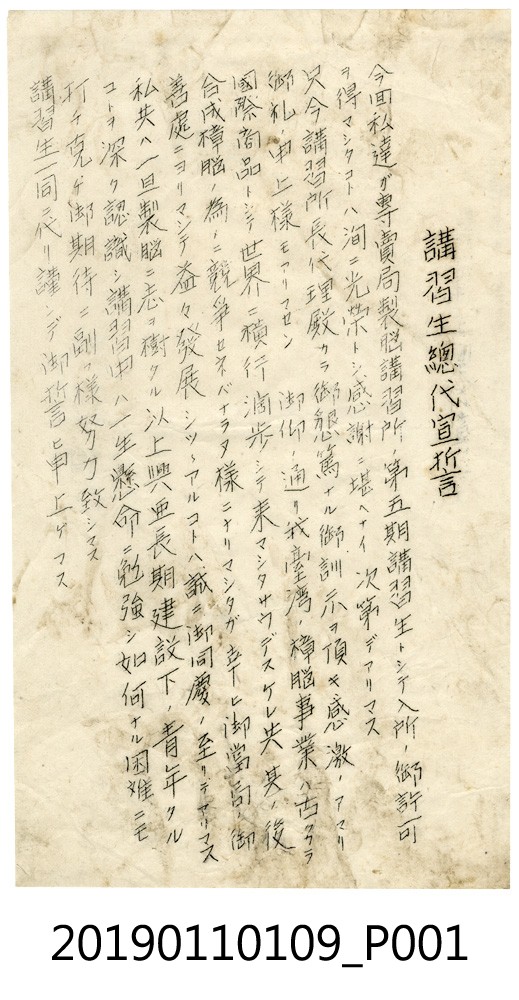 講習生總代宣誓
今回私達ガ專賣局製脳講習所ノ第五期講習生トシテ入所ノ御許可
ヲ得マシタコトハ洵ニ光榮トシ感謝ニ堪ヘナイ次第デアリマス
只今講習所長代理殿カラ御懇篤ナル御訓示ヲ頂キ感激ノアマリ
御礼ノ申上様モアリマセン 御仰ノ通リ我臺湾ノ樟脳事業ハ古クカラ
國際商品トシテ世界ニ横行濶歩シテ来マシタサウデスケレ共其ノ後
合成樟脳ノ為ニ競爭セネバナラヌ様ニナリマシタガ幸ヒ御當局ノ御
善處ニヨリマシテ益々發展シツヽアルコトハ誠ニ御同慶ノ至リデアリマス
私共ハ一旦製脳ニ志ヲ樹タル以上興亜長期建設下ノ青年タル
コトヲ深ク認識シ講習中ハ一生懸命ニ勉強シ如何ナル困難ニモ
打チ克ゲ御期待ニ副フ様努力致シマス
講習生一同ニ代リ謹ンデ御誓ヒ申上ゲマス
20190110109_P001